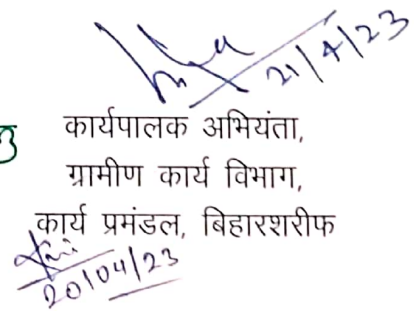 21/4/23
कार्यपालक अभियंता,
ग्रामीण कार्य विभाग,
कार्य प्रमंडल, बिहारशरीफ
20/04/23